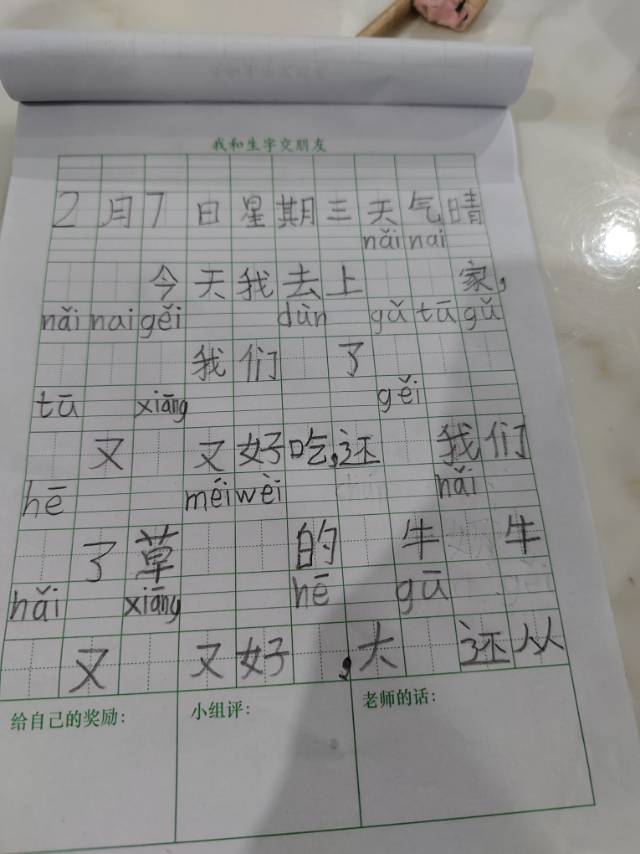 我和生字交朋友
2月7日星期三天气晴
nǎi nai
今天我去上 家，
nǎi nai gěi dùn gǔ tū gǔ
我们 了
tū xiāng gěi
又 又好吃，还 我们
hē méi wèi nǎi
了草 的 牛 牛
hǎi xiāng hē gū
又 又好 ，大 还从
给自己的奖励：
小组评：
老师的话：